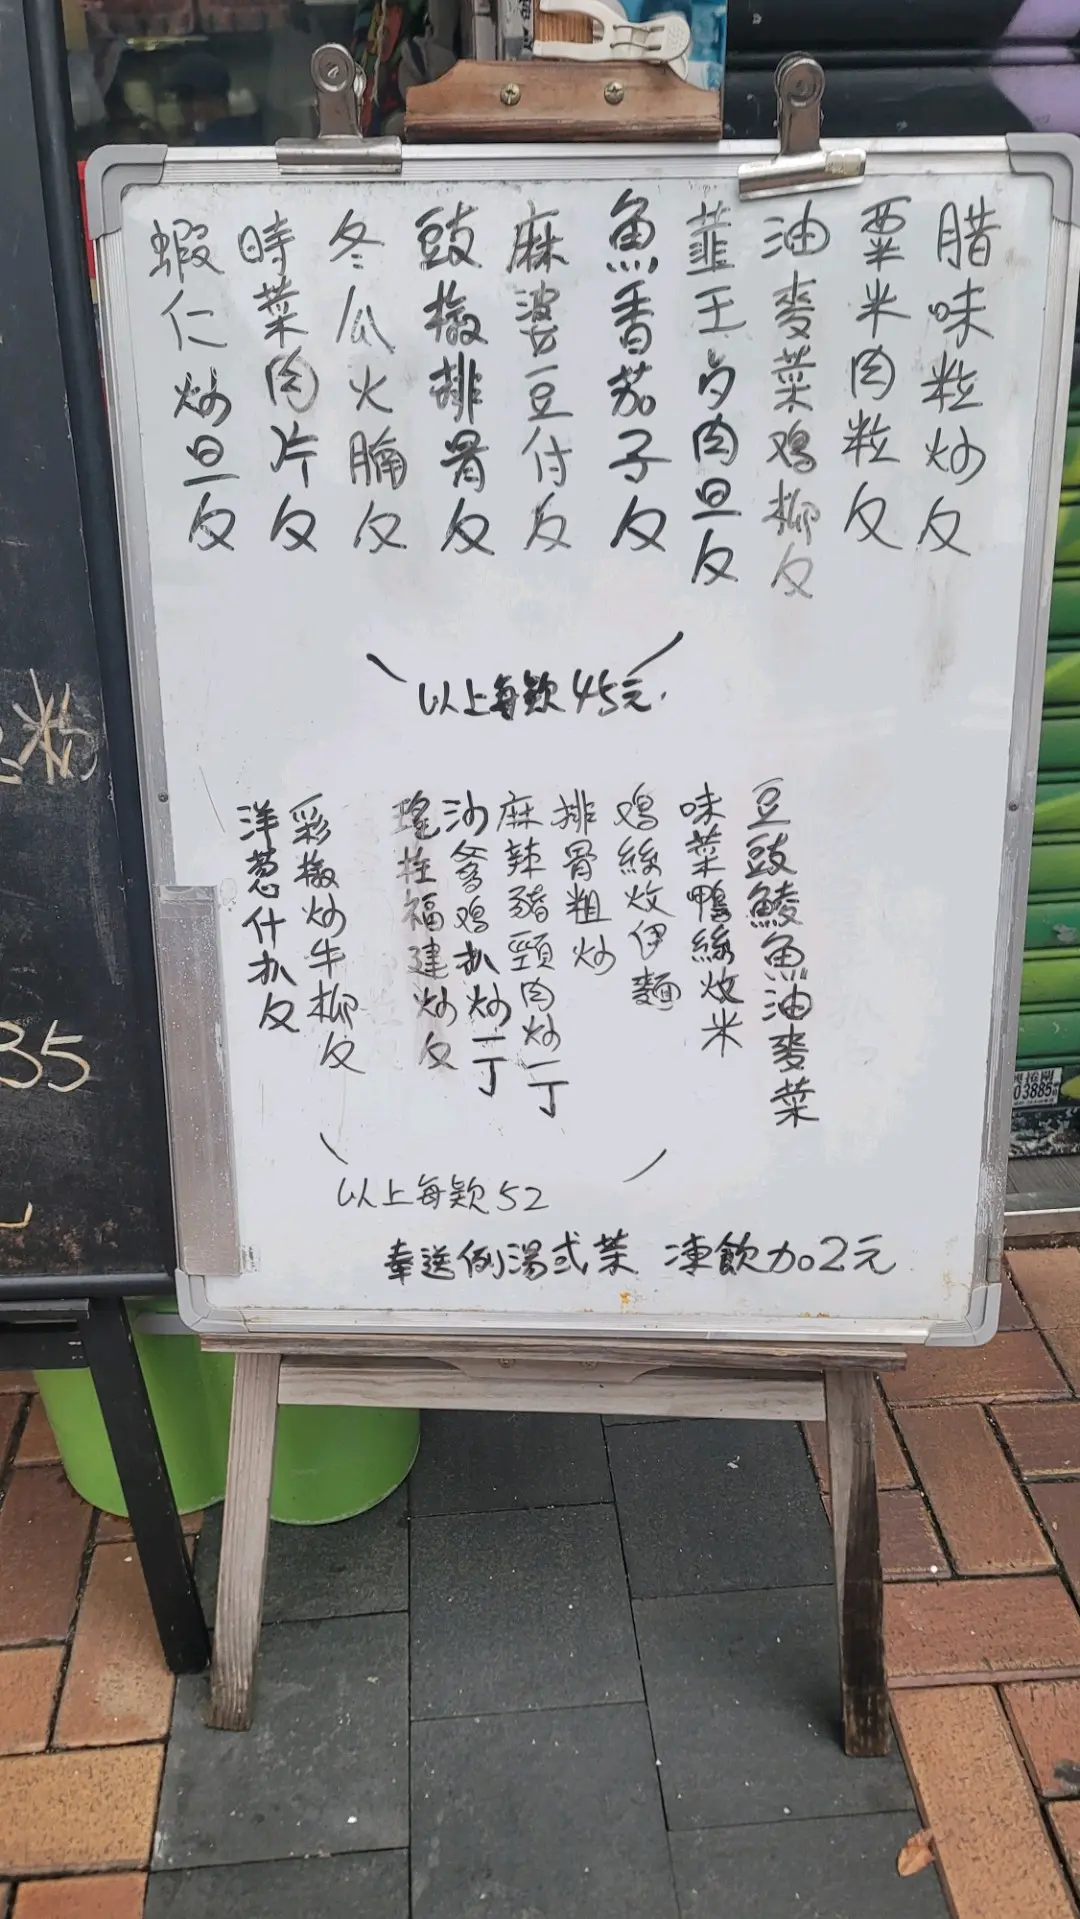 腊味粒炒反
粟米肉粒反
油麥菜鸡柳反
韮王肉旦反
魚香茄子反
麻婆豆付反
豉椒排骨反
冬瓜火腩反
時菜肉片反
蝦仁炒旦反
以上每款45元.
豆豉鯪魚油麥菜
味菜鴨絲炆米
鸡絲炆伊麵
排骨粗炒
麻辣豬頸肉炒一丁
沙爹鸡扒炒一丁
瑤柱福建炒反
彩椒炒牛柳反
洋葱什扒反
以上每款52
奉送例湯或茶 凍飲加2元
粉
35
3885